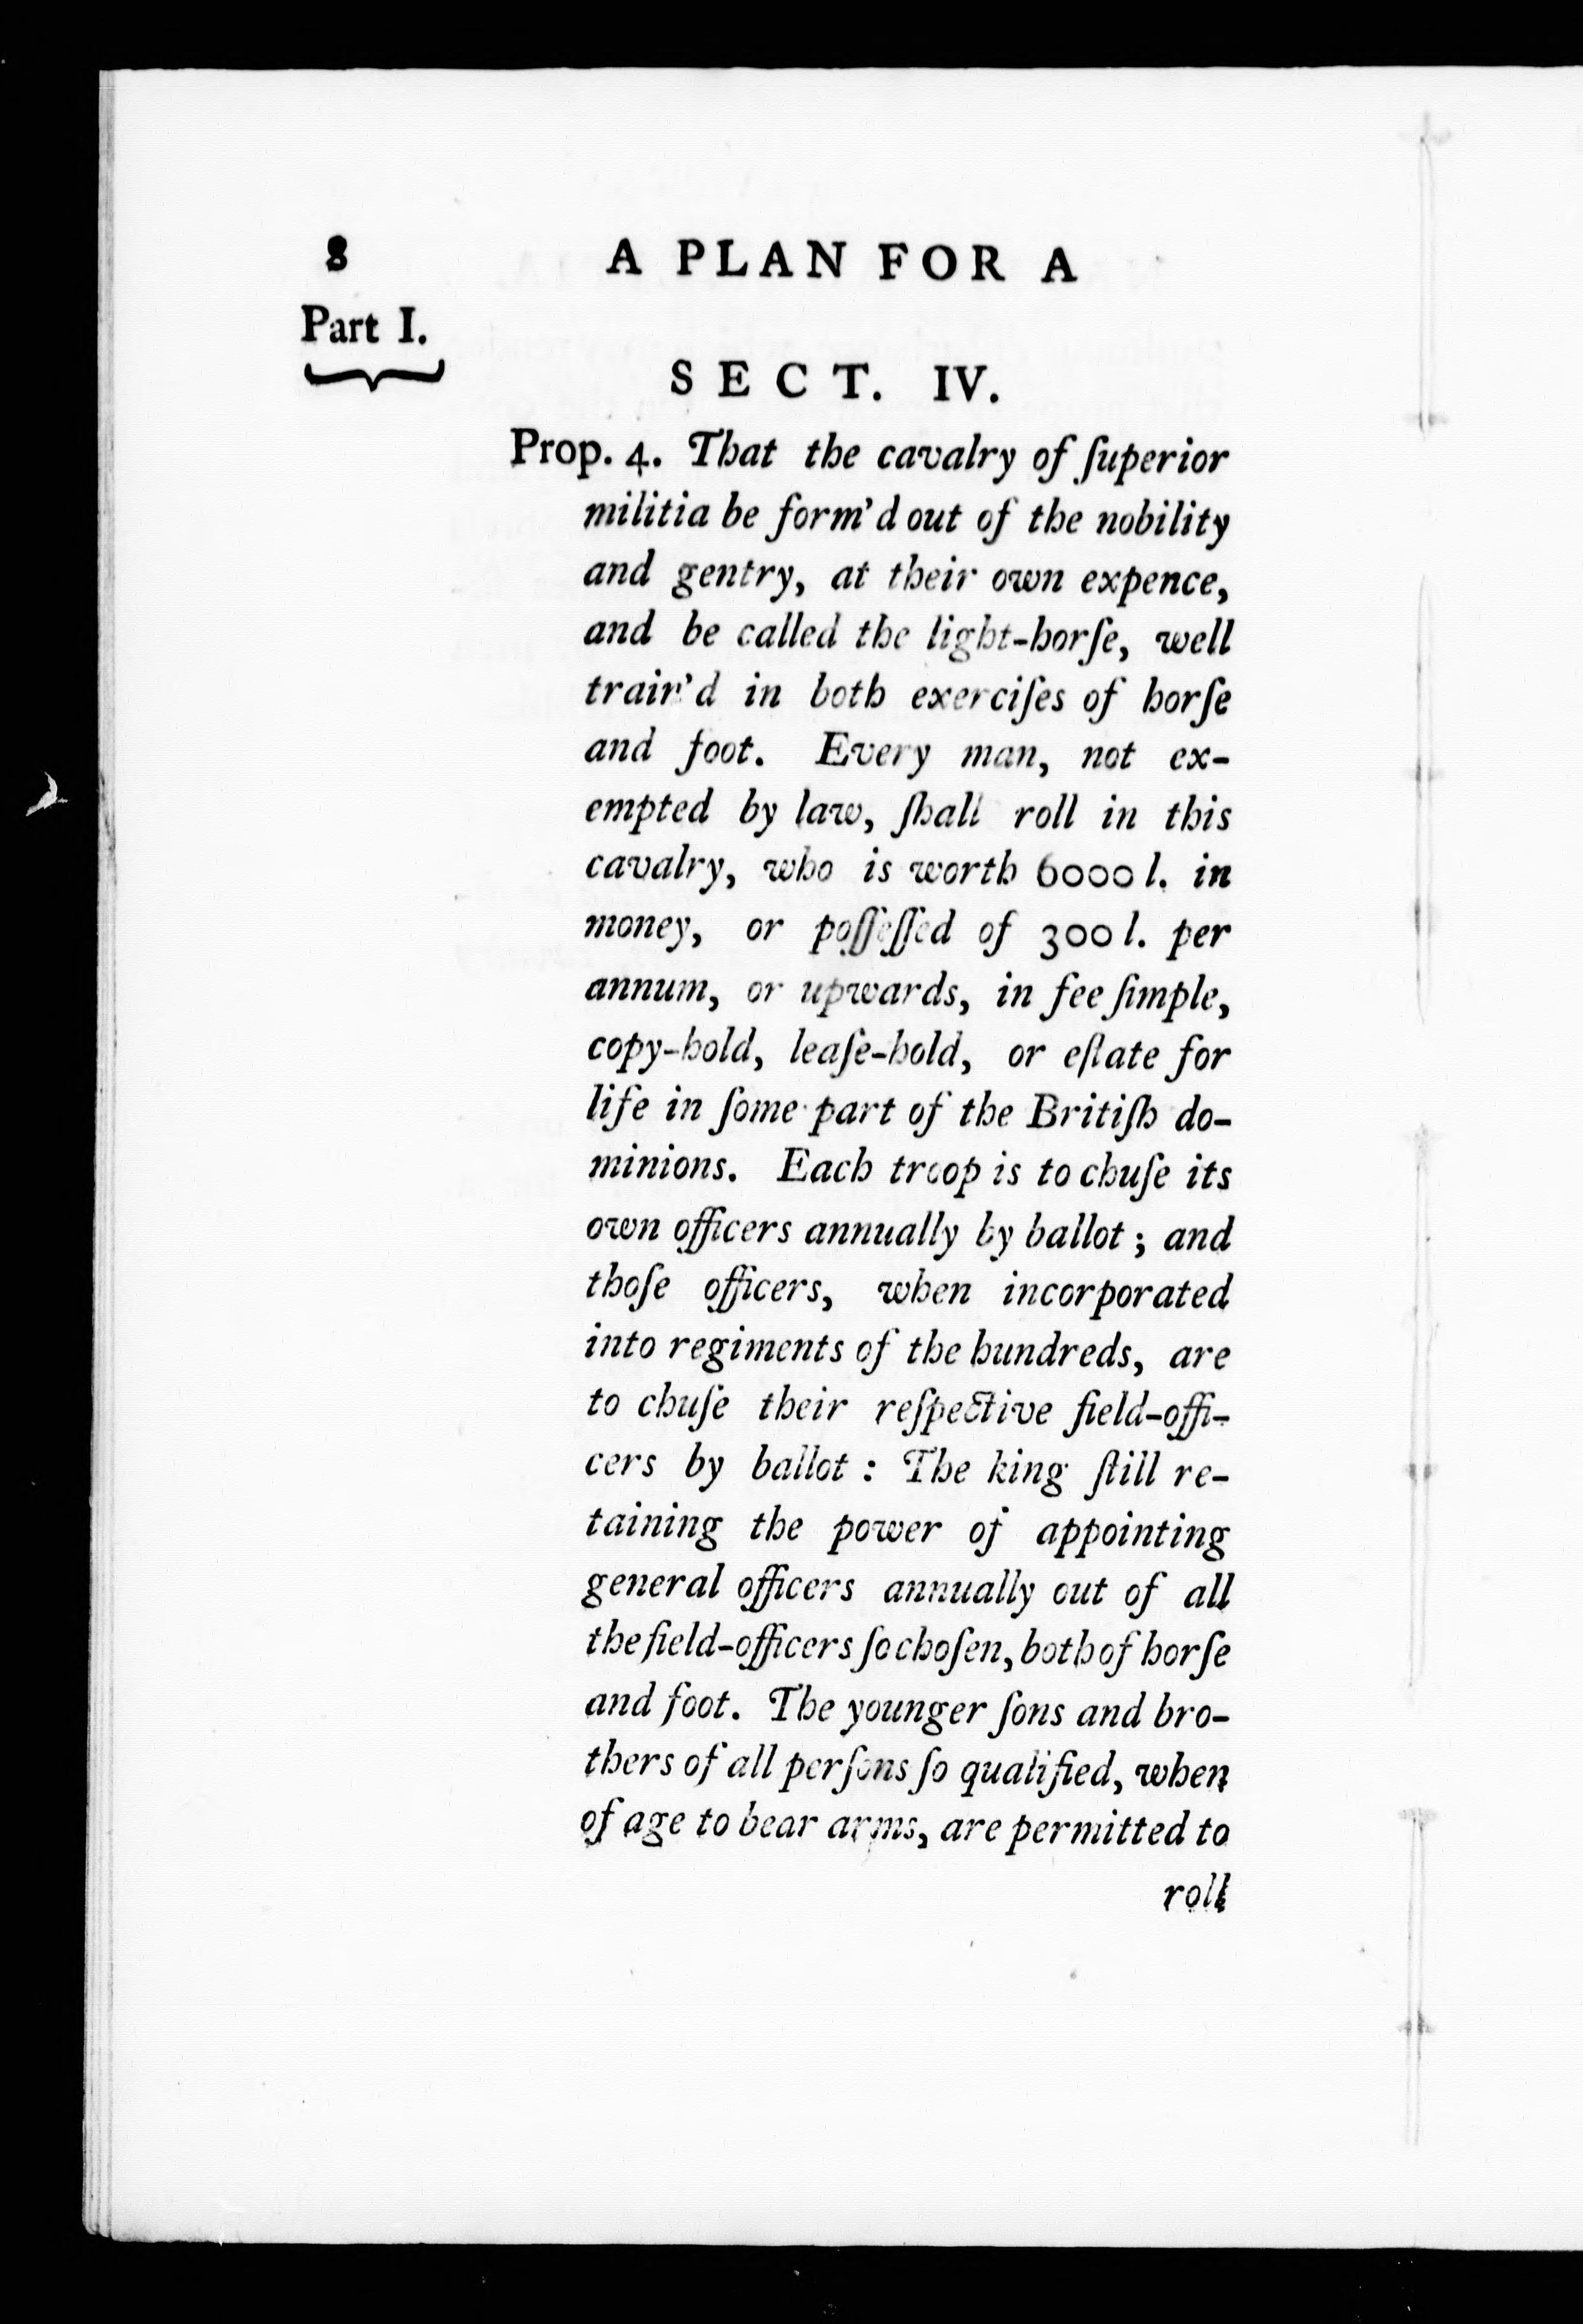 8 A PLAN FOR A
Part I.
SECT. IV.
Prop. 4. That the cavalry of ſuperior
militia be form'd out of the nobility
and gentry, at their own expence,
and be called the light-horſe, well
train'd in both exerciſes of horſe
and foot. Every man, not ex-
empted by law, ſhall roll in this
cavalry, who is worth 6000 l. in
money, or poſſeſſed of 300 l. per
annum, or upwards, in fee ſimple,
copy-hold, leaſe-hold, or eſtate for
life in ſome part of the Britiſh do-
minions. Each troop is to chuſe its
own officers annually by ballot; and
thoſe officers, when incorporated
into regiments of the hundreds, are
to chuſe their reſpective field-offi-
cers by ballot: The king ſtill re-
taining the power of appointing
general officers annually out of all
the field-officers ſo choſen, both of horſe
and foot. The younger ſons and bro-
thers of all perſons ſo qualified, when
of age to bear arms, are permitted to
roll